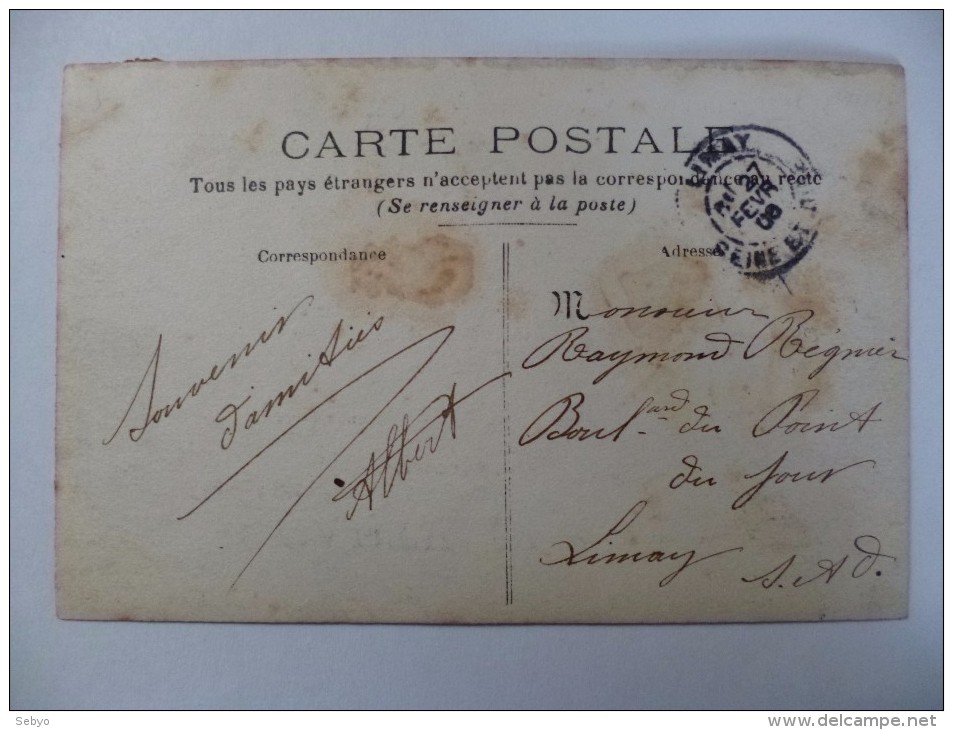 CARTE POSTALE
Tous les pays étrangers n'acceptent pas la correspondance au recto
(Se renseigner à la poste)
Correspondance
Souvenir
d'amitiés
Albert
Adresse
Monsieur
Raymond Régnier
Boul-ard du Point
du jour
Limay
S. et O.
LIMAY
27
FEVR
06
SEINE ET OISE
Sebyo
www.delcampe.net